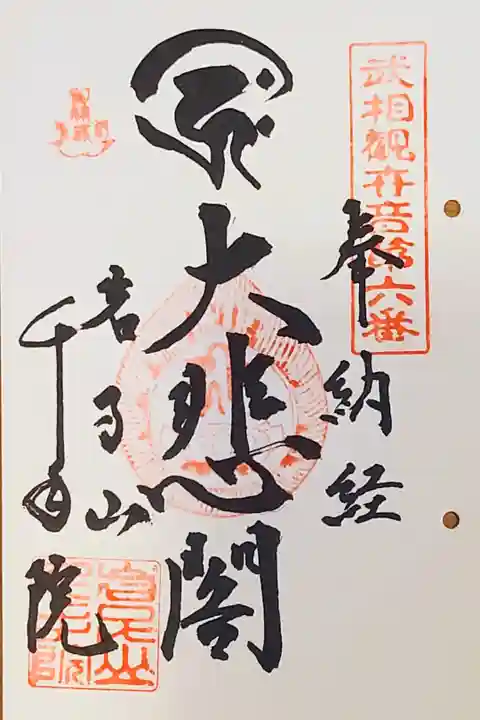 武相観世音第六番
奉納経
大悲閣
高乃山
千手院